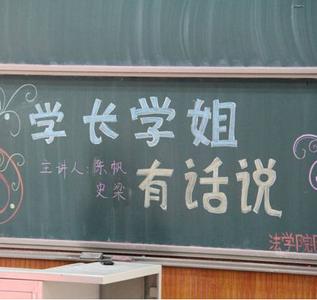 学长学姐
主讲人:陈帆
史梁
有话说
法学院